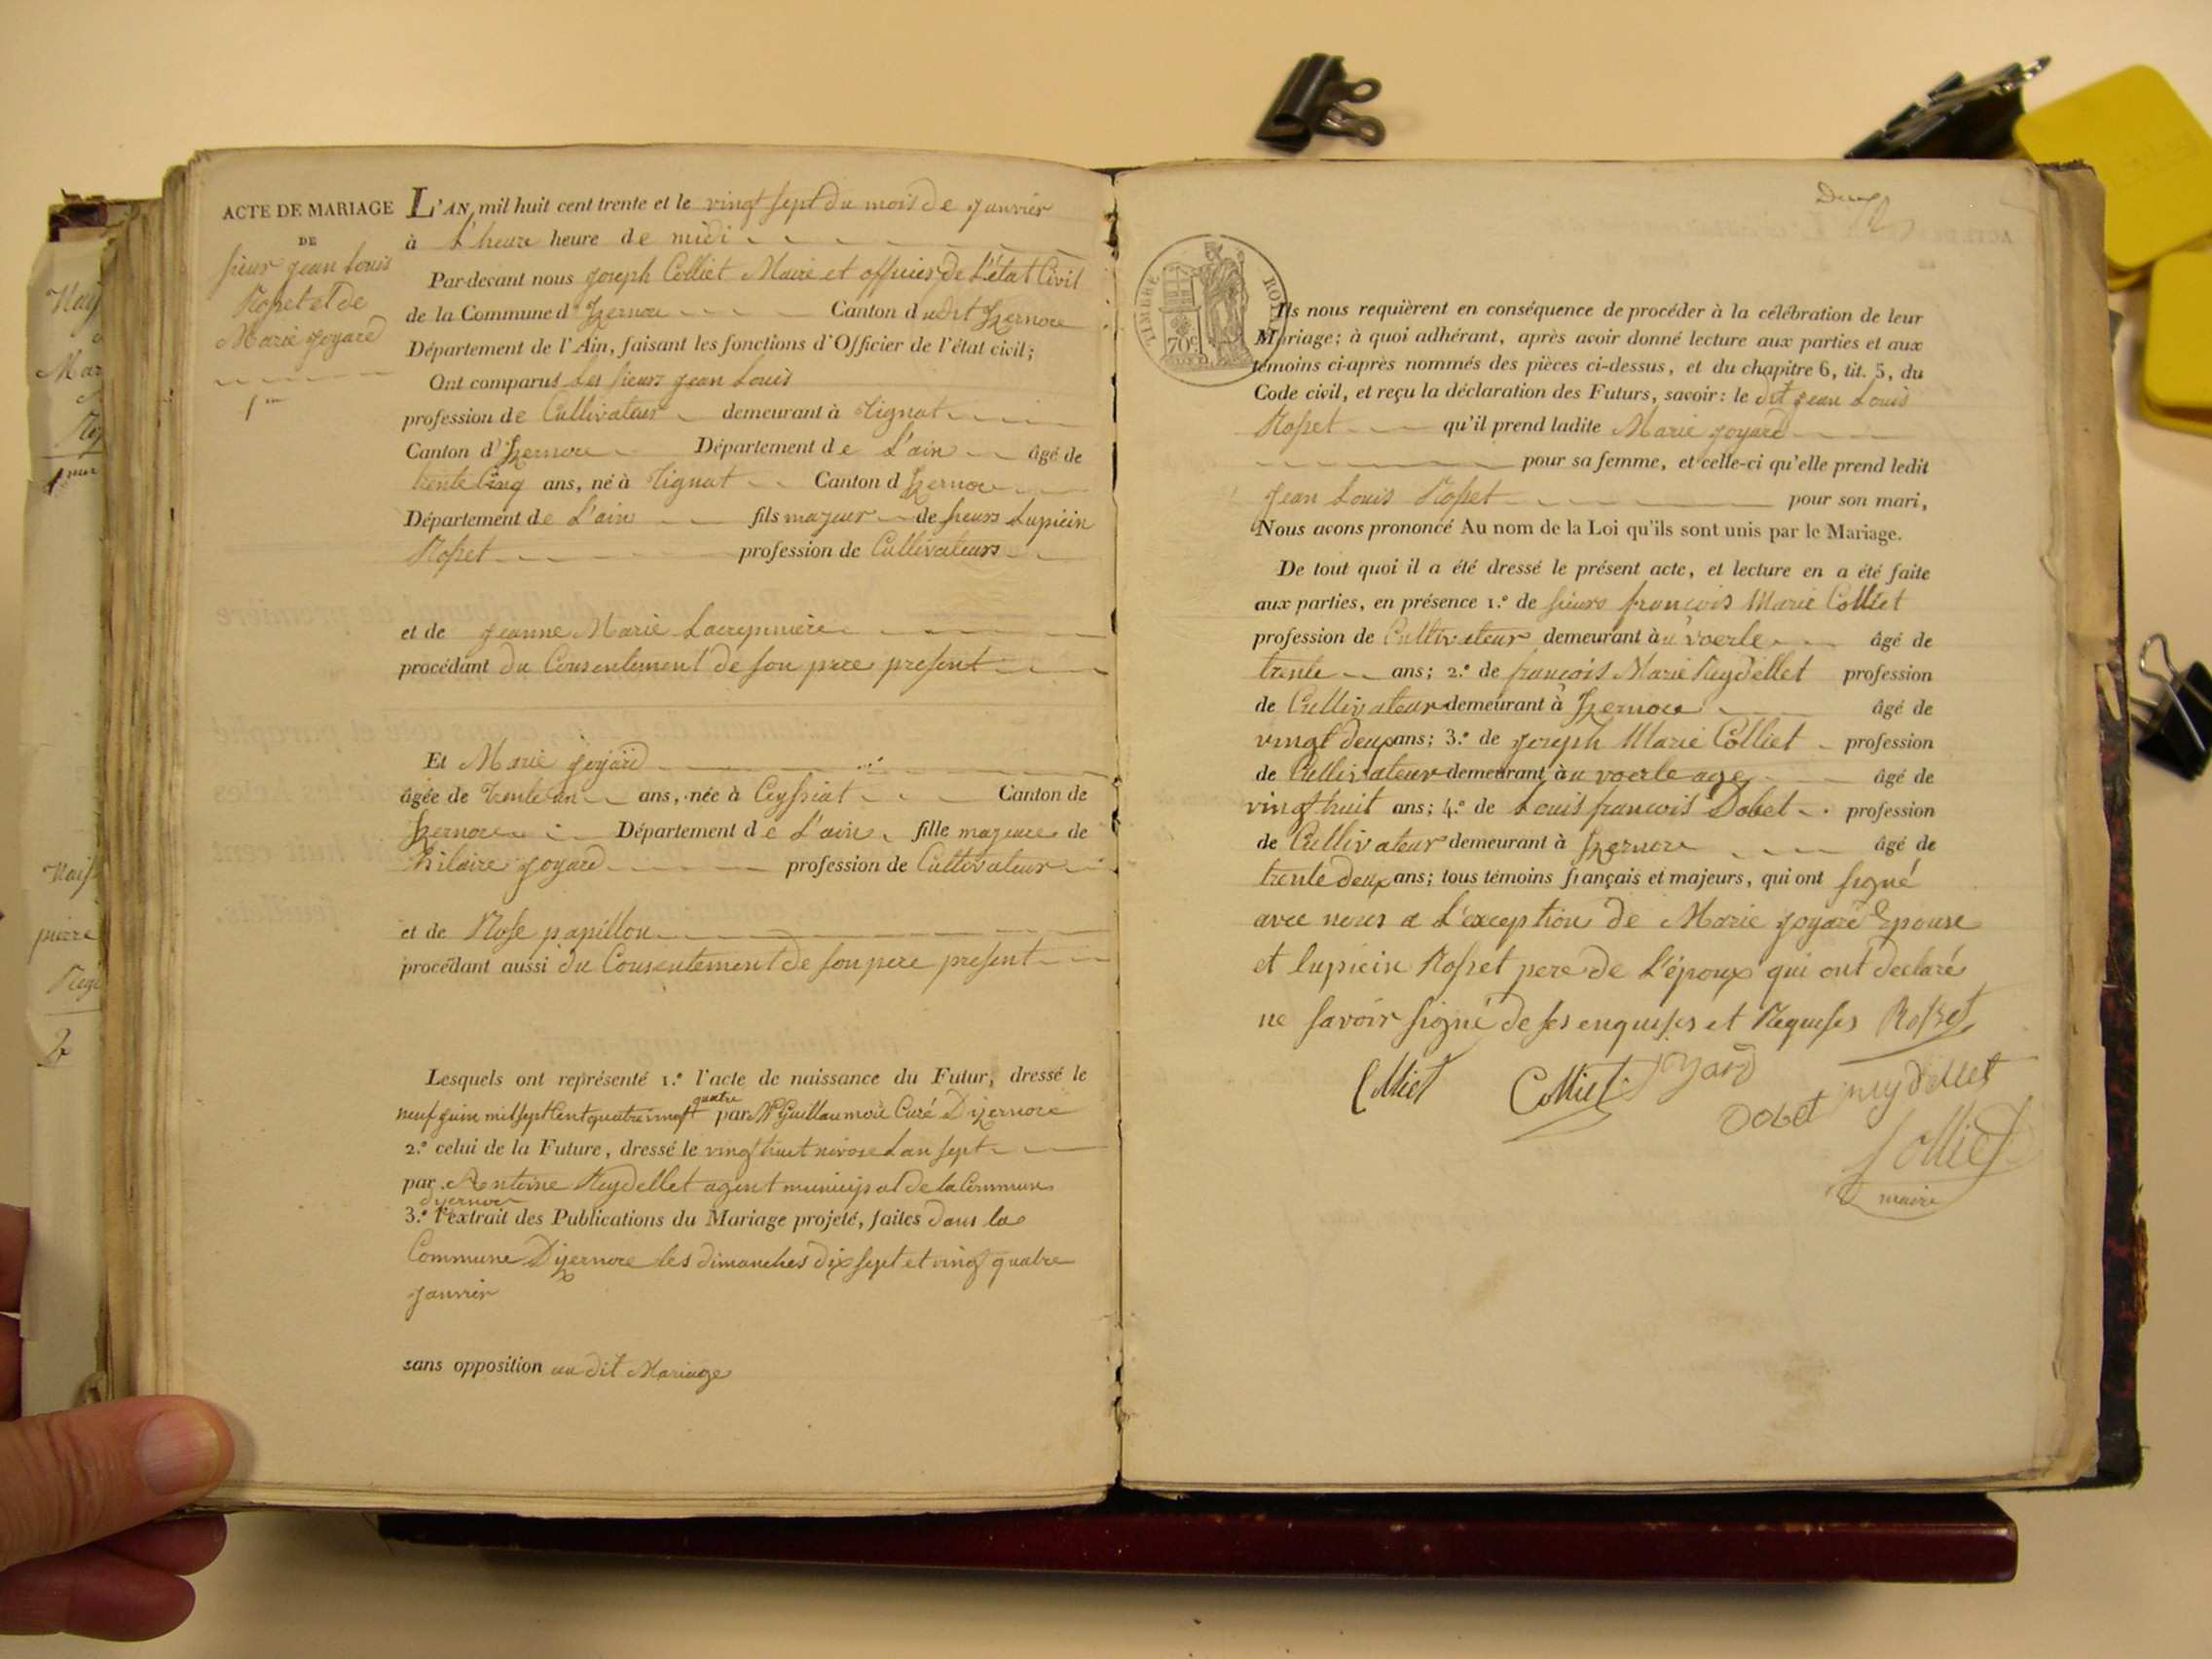 ACTE DE MARIAGE
DE
sieur jean Louis
Rosset et de
Marie joyard
1er
L'AN mil huit cent trente et le vingt sept du mois de janvier
à L'heure heure de midi
Par-devant nous joseph Colliet Maire et officier de L'état Civil
de la Commune d'Izernore Canton dudit Izernore
Département de l'Ain, faisant les fonctions d'Officier de l'état civil;
Ont comparus Les sieurs jean Louis
profession de Cultivateur demeurant à Tignat
Canton d'Izernore Département de L'ain âgé de
trente Cinq ans, né à Tignat Canton d Izernore
Département de L'ain fils majeur de sieurs Lupicin
Rosset profession de Cultivateurs
et de jeanne Marie
procédant du Consentement de son pere present
Et Marie joyard
âgée de trente un ans, née à Ceyssiat Canton de
Izernore Département de L'ain fille majeure de
hilaire joyard profession de Cultivateur
et de Rose papillon
procédant aussi du Consentement de son pere present
Lesquels ont représenté 1.º l'acte de naissance du Futur, dressé le
quatre
neuf juin mil sept Cent quatre vingt par Mr Guillaumot Curé Dizernore
2.º celui de la Future, dressé le vingt huit nivose L'an sept
par Antoine Reydellet agent municipal de la Commune
dyzernore
3.º l'extrait des Publications du Mariage projeté, faites dans la
Commune Dizernore les dimanches dix sept et vingt quatre
janvier
sans opposition au dit Mariage
Deux
TIMBRE ROYAL
70c
Ils nous requièrent en conséquence de procéder à la célébration de leur
Mariage; à quoi adhérant, après avoir donné lecture aux parties et aux
témoins ci-après nommés des pièces ci-dessus, et du chapitre 6, tit. 5, du
Code civil, et reçu la déclaration des Futurs, savoir: le dit jean Louis
Rosset qu'il prend ladite Marie joyard
pour sa femme, et celle-ci qu'elle prend ledit
jean Louis Rosset pour son mari,
Nous avons prononcé Au nom de la Loi qu'ils sont unis par le Mariage.
De tout quoi il a été dressé le présent acte, et lecture en a été faite
aux parties, en présence 1.º de sieurs françois Marie Colliet
profession de Cultivateur demeurant à u voerle âgé de
trente ans; 2.º de françois Marie Reydellet profession
de Cultivateur demeurant à Izernore âgé de
vingt deux ans; 3.º de joseph Marie Colliet profession
de Cultivateur demeurant à u voerle age âgé de
vingt huit ans; 4.º de Louis françois Dobet profession
de Cultivateur demeurant à Izernore âgé de
trente deux ans; tous témoins français et majeurs, qui ont signé
avec nous a L'exception de Marie joyard Epouse
et lupicin Rosset pere de L'époux qui ont declaré
ne savoir signé de ses enquises et Requises Rosset
Colliet Colliet joyard
Dobet reydellet
Colliet
maire
Nais
Mar
Rey
1mer
Naiss
pierre
Reyd
2